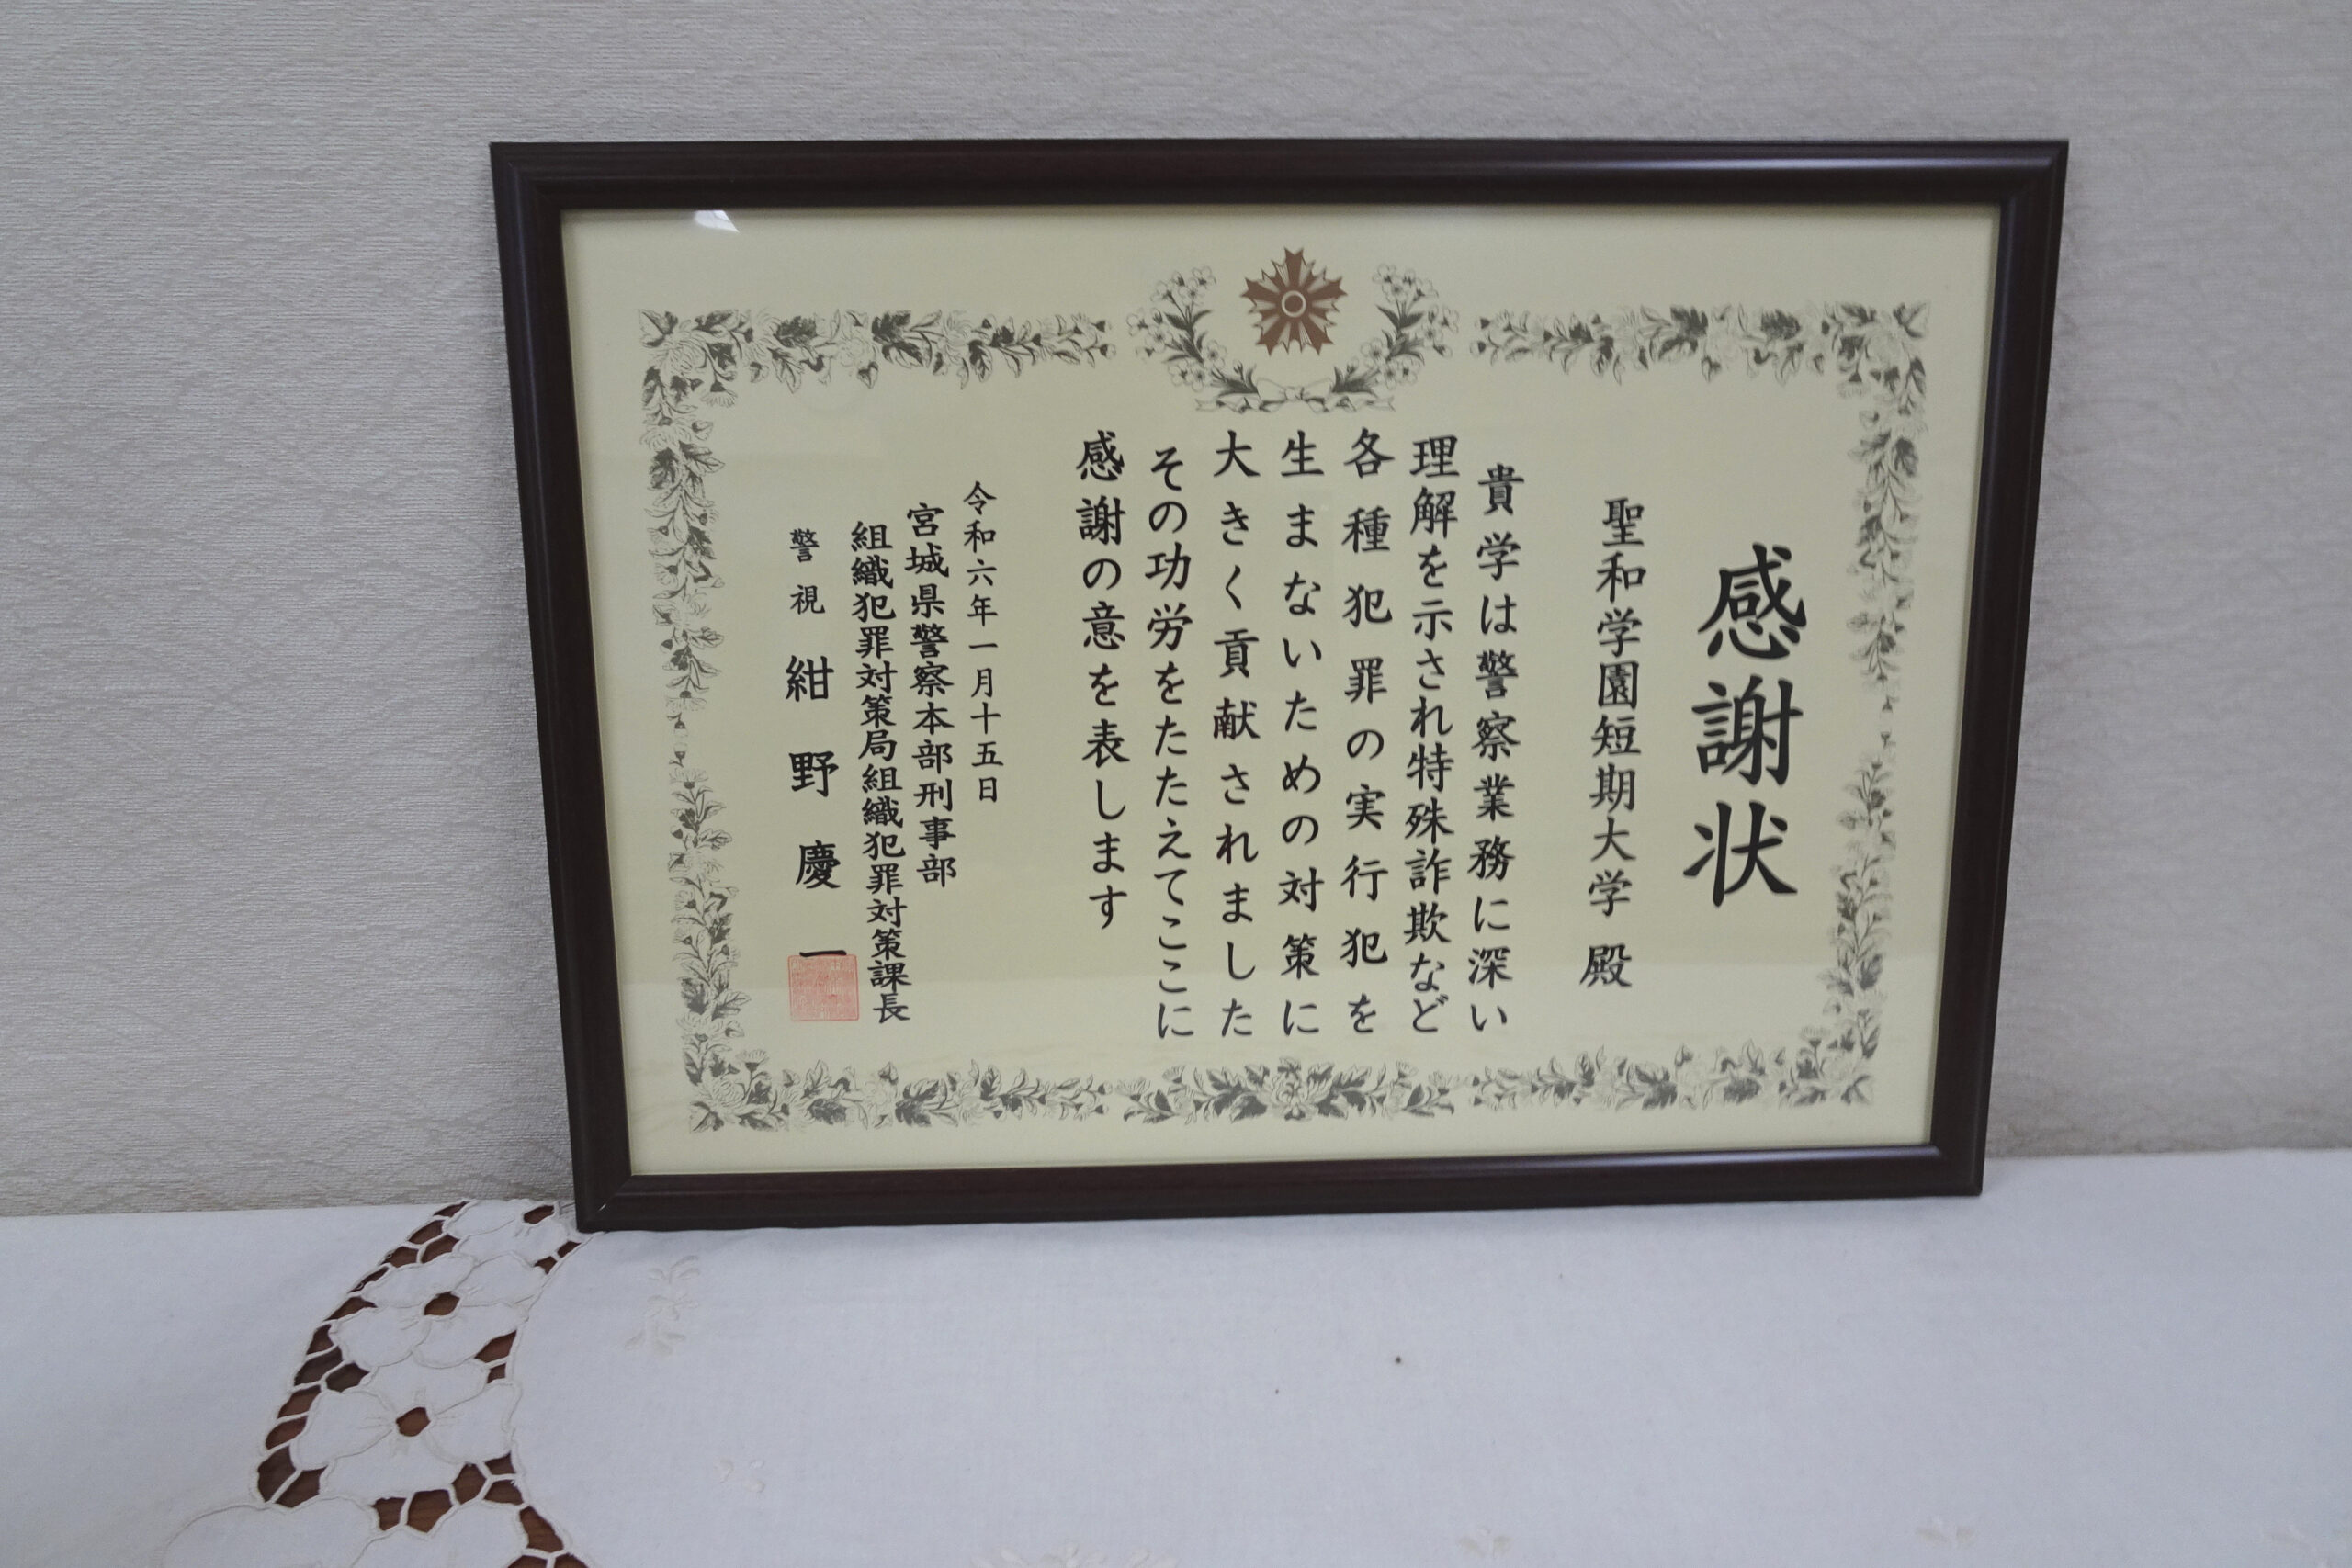 感謝状
聖和学園短期大学 殿
貴学は警察業務に深い
理解を示され特殊詐欺など
各種犯罪の実行犯を
生まないための対策に
大きく貢献されました
その功労をたたえてここに
感謝の意を表します
令和六年一月十五日
宮城県警察本部刑事部
組織犯罪対策局組織犯罪対策課長
警視 紺野慶一